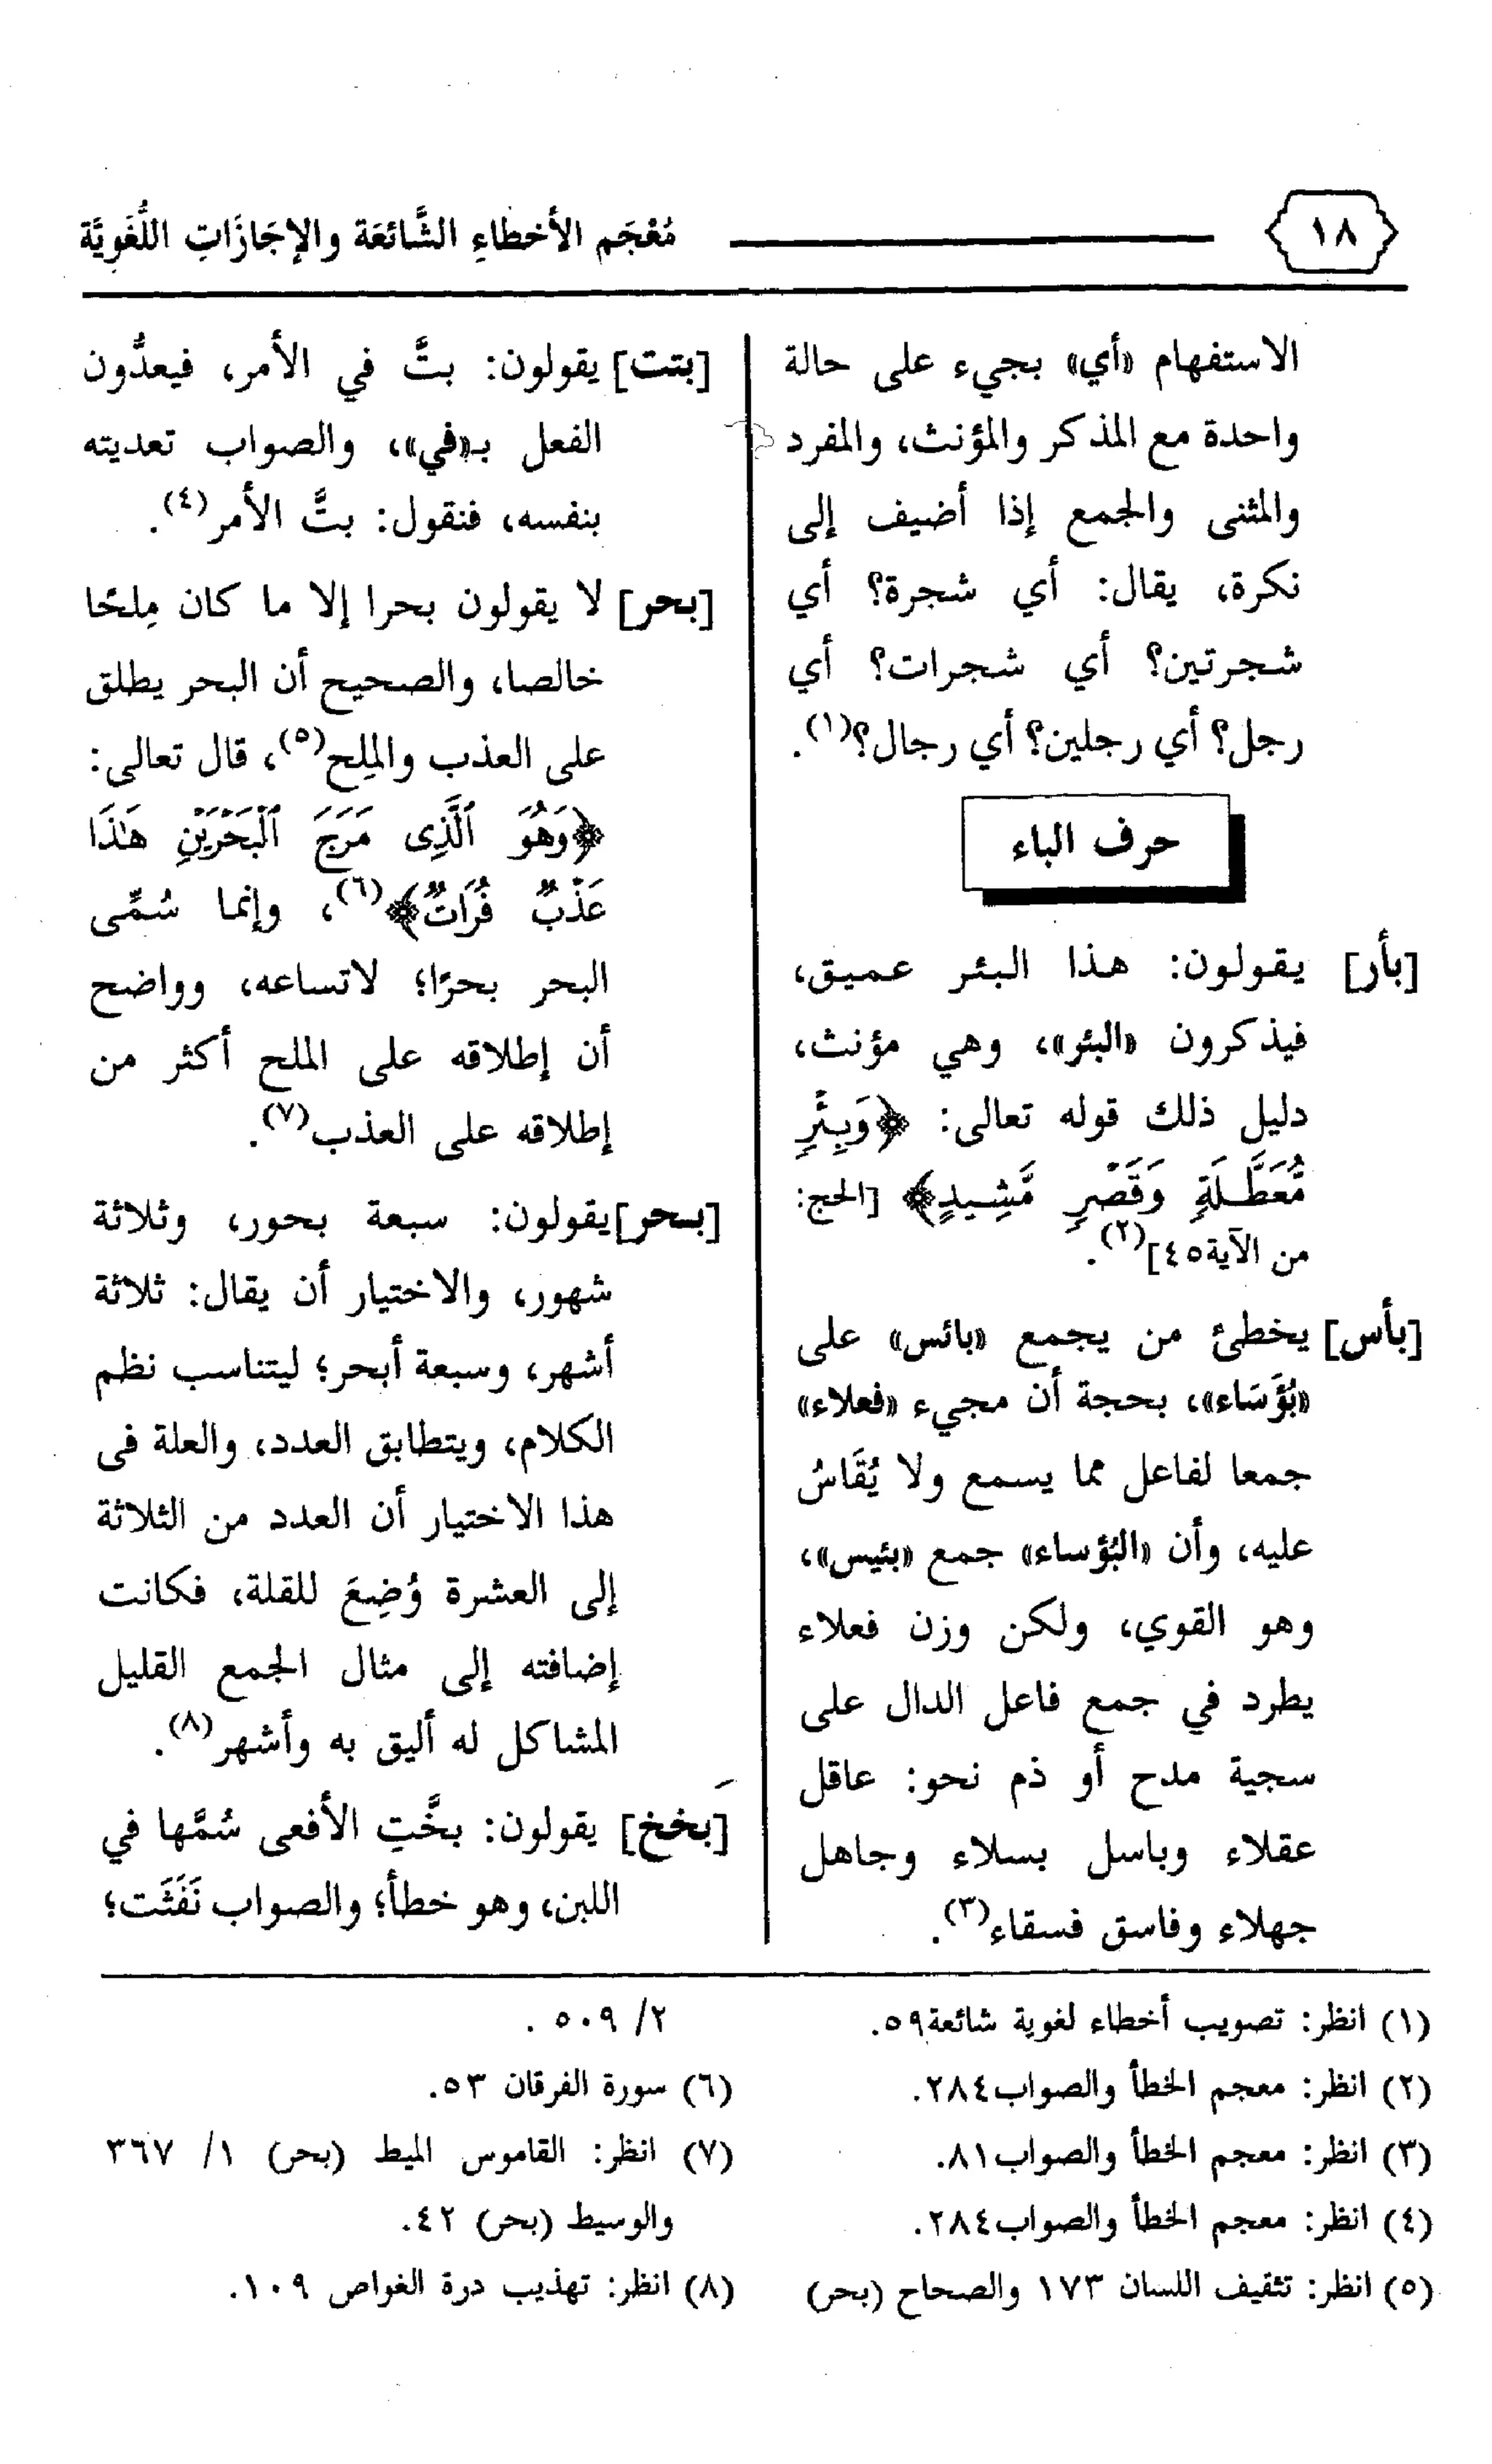 ١٨
مُعْجَم الأخطاءِ الشَّائعَة والإجَازَاتِ اللُّغَويَّة
الاستفهام «أي» بجيء على حالة
واحدة مع المذكر والمؤنث، والمفرد
والمثنى والجمع إذا أضيف إلى
نكرة، يقال: أي شجرة؟ أي
شجرتين؟ أي شجرات؟ أي
رجل؟ أي رجلين؟ أي رجال؟(١).
حرف الباء
[بأر] يقولون: هذا البئر عميق،
فيذكرون «البئر»، وهي مؤنث،
دليل ذلك قوله تعالى: ﴿وَبِئْرٍ
مُّعَطَّلَةٍ وَقَصْرٍ مَّشِيدٍ﴾ [الحج:
من الآية٤٥](٢).
[بأس] يخطئ من يجمع «بائس» على
«بُؤَسَاء»، بحجة أن مجيء «فعلاء»
جمعا لفاعل مما يسمع ولا يُقَاسُ
عليه، وأن «البُؤساء» جمع «بئيس»،
وهو القوي، ولكن وزن فعلاء
يطرد في جمع فاعل الدال على
سجية مدح أو ذم نحو: عاقل
عقلاء وباسل بسلاء وجاهل
جهلاء وفاسق فسقاء(٣).
[بتت] يقولون: بتَّ في الأمر، فيعدُّون
الفعل بـ«في»، والصواب تعديته
بنفسه، فنقول: بتَّ الأمر(٤).
[بحر] لا يقولون بحرا إلا ما كان مِلحًا
خالصا، والصحيح أن البحر يطلق
على العذب والمِلح(٥)، قال تعالى:
﴿وَهُوَ ٱلَّذِى مَرَجَ ٱلْبَحْرَيْنِ هَٰذَا
عَذْبٌ فُرَاتٌ﴾(٦)، وإنما سُمِّى
البحر بحرًا؛ لاتساعه، وواضح
أن إطلاقه على الملح أكثر من
إطلاقه على العذب(٧).
[بحر] يقولون: سبعة بحور، وثلاثة
شهور، والاختيار أن يقال: ثلاثة
أشهر، وسبعة أبحر؛ ليتناسب نظم
الكلام، ويتطابق العدد، والعلة فى
هذا الاختيار أن العدد من الثلاثة
إلى العشرة وُضِعَ للقلة، فكانت
إضافته إلى مثال الجمع القليل
المشاكل له أليق به وأشهر(٨).
[بخخ] يقولون: بخَّتِ الأفعى سُمَّها في
اللبن، وهو خطأ؛ والصواب نَفَثَت؛
(١) انظر: تصويب أخطاء لغوية شائعة٥٩.
(٢) انظر: معجم الخطأ والصواب٢٨٤.
(٣) انظر: معجم الخطأ والصواب٨١.
(٤) انظر: معجم الخطأ والصواب٢٨٤.
(٥) انظر: تثقيف اللسان ١٧٣ والصحاح (بحر)
٢/ ٥٠٩ .
(٦) سورة الفرقان ٥٣.
(٧) انظر: القاموس الميط (بحر) ١/ ٣٦٧
والوسيط (بحر) ٤٢.
(٨) انظر: تهذيب درة الغواص ١٠٩.